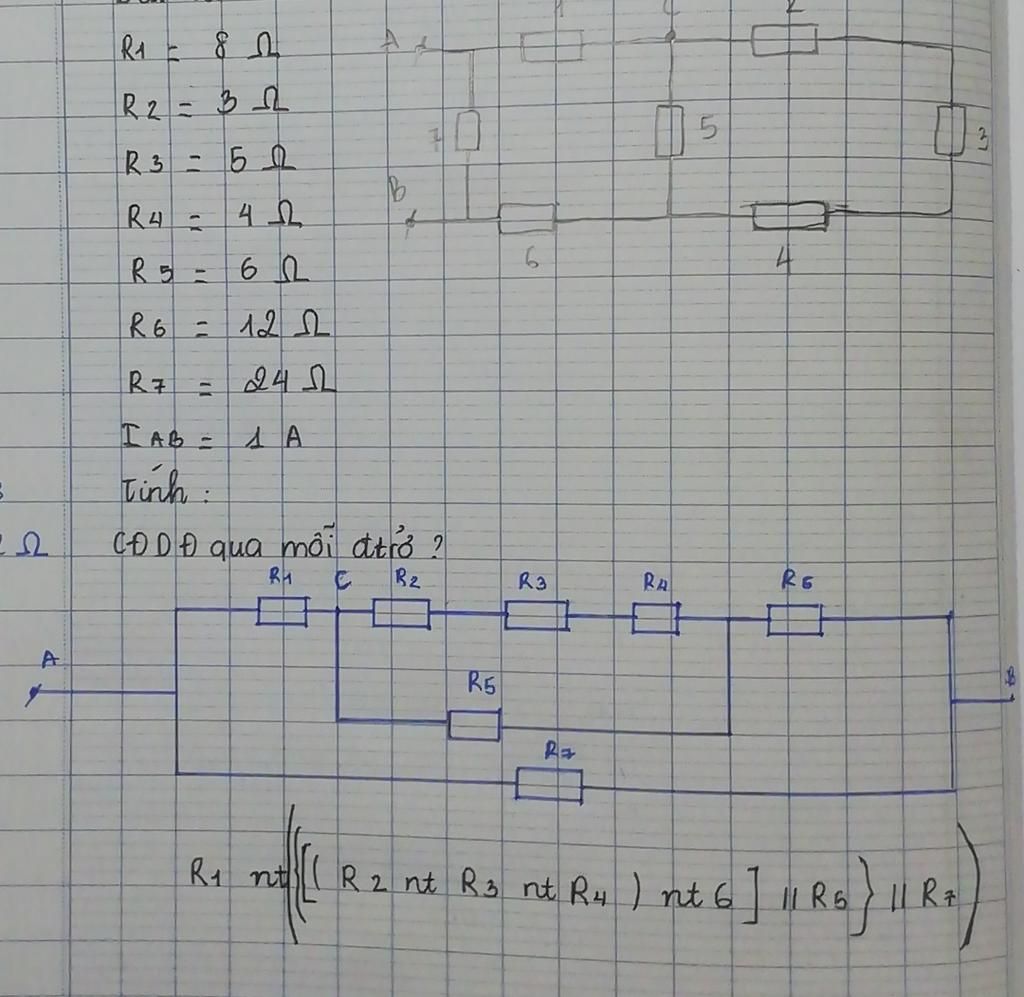 R1 = 8 Ω
R2 = 3 Ω
R3 = 5 Ω
R4 = 4 Ω
R5 = 6 Ω
R6 = 12 Ω
R7 = 24 Ω
IAB = 1 A
Tính :
CĐDĐ qua mỗi đtrở ?
A
2
7
5
3
B
6
4
Ω
R1 C R2 R3 R4 R6
A
B
R5
R7
R1 nt ({[( R2 nt R3 nt R4 ) nt 6 ] // R5 } // R7 )